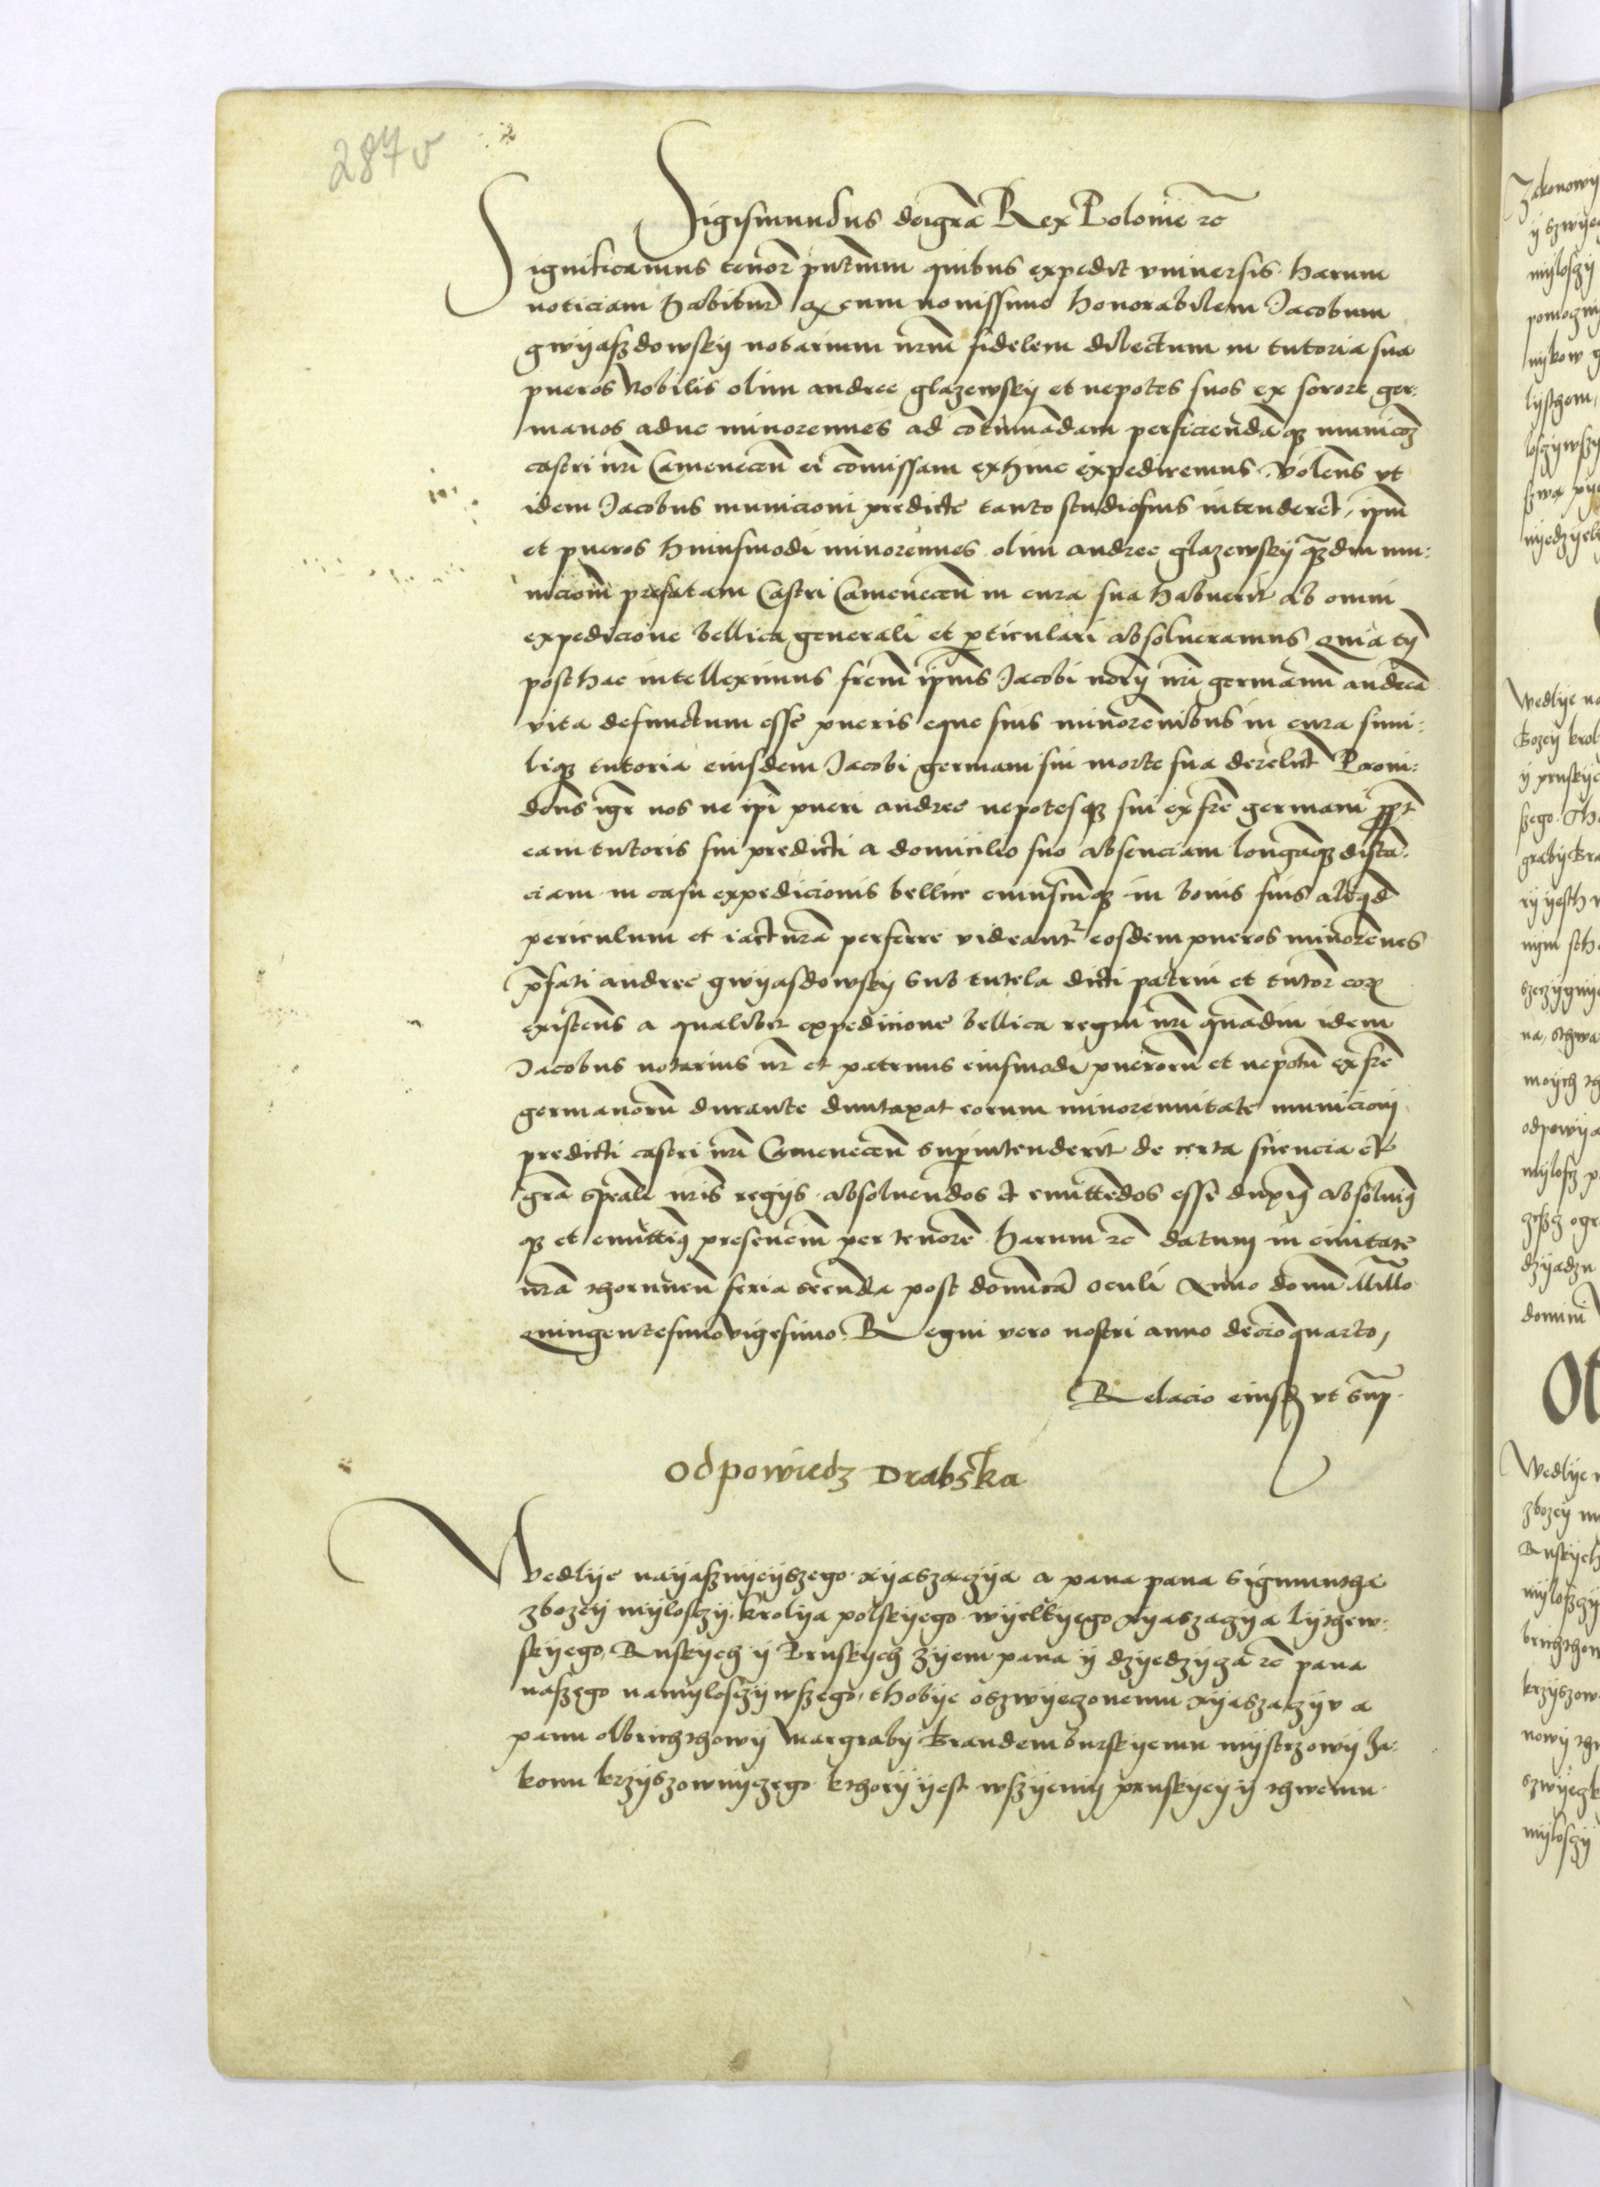 287v
Sigismundus dei gra Rex Polonie rc
Significamus tenor pntium quibus expedit vniversis harum
noticiam habitur Q cum novissime honorabilem Jacobum
gwyaszdowsky notarium nrm fidelem dilectum in tutoria sua
pueros Nobilis olim andree glazewsky et nepotes suos ex sorore ger:
manos aduc minorennes ad continuadam perficiendaq municoem
castri nri Camenecen ei comissam ex hinc expediremus Volens vt
idem Jacobus municioni predicte tanto studiosius intenderet, ipm
et pueros huiusmodi minorennes olim andree glazewsky qdiu mu:
nicioem prefatam Castri Camenecen in cura sua habuerit ab omni
expedicione bellica generali et pticulari absolueramus Quia
post hac intelleximus frem ipius Jacobi notrij nri germanum andrea
vita defunctum esse pueris eque suis minorenibus in cura simi:
liq tutoria eiusdem Jacobi germani sui morte sua derelict Provi:
dens igr nos ne ipi pueri andree nepotesq sui ex fre germani ppt
eam tutoris sui predicti a domicilio suo absenciam longaq dista:
ciam in casu expedicionis bellice cuiuscuq in bonis suis aliqd
periculum et iactura perferre videantr eosdem pueros minorenes
pfati andree gwyasdowsky sub tutela dicti patrui et tutor eor
existens a qualibet expedicione bellica regni nri quadiu idem
Jacobus notarius nr et patruus eiusmodi pueroru et nepotu ex fre
germanoru durante duntaxat eorum minorennitate municioni
predicti castri nri Camenecen supintenderit de certa sciencia et
gra speali nris regijs absoluendos et emittedos esse duxim absoluim
q et emittim presencim per tenore harum rc datum in ciuitate
nra thorunen feria secunda post dominica oculi Anno domi Millo
Quingentesimo vigesimo Regni vero nostri anno decioquarto,
Relacio eiusd vt sup
Odpowiedz Drabska
Wedlije nayasznyeyszego xyaszaczya a pana pana Sigmuntha
zbozey myloszczy krolya polskyego wyelkyego xyaszaczya lythew:
skyego Ruskych y Pruskych zyem pana y dzyedzycza rc pana
naszego namyloszczywszego, thobye oszwyeczonemu xyaszaczyv a
panu olbrichthowy Margraby Brandemburskyemu mystrzowy Za:
konu krzyszownyczego kthory yest wszyemy pruskyey y thwemu